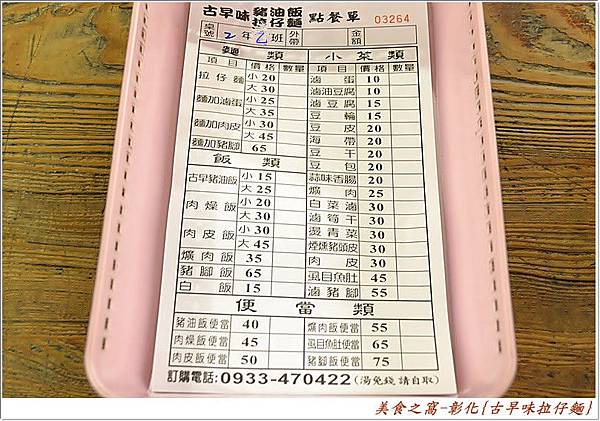 古早味 豬油飯 拉仔麵 點餐單 03264
桌號 2年乙班 外帶 金額
麵類
項目 價格 數量
拉仔麵 小 20
大 30
麵加滷蛋 小 25
大 35
麵加肉皮 小 30
大 45
麵加豬腳 65
飯類
古早豬油飯 小 15
大 25
肉燥飯 小 20
大 30
肉皮飯 小 30
大 45
爌肉飯 35
豬腳飯 65
白飯 15
小菜類
項目 價格 數量
滷蛋 10
滷油豆腐 10
滷豆腐 15
豆輪 15
豆皮 20
海帶 20
豆干 20
豆包 20
蒜味香腸 20
爌肉 25
白菜滷 30
滷筍干 30
燙青菜 30
煙燻豬頭皮 30
肉皮 30
虱目魚肚 45
滷豬腳 55
便當類
豬油飯便當 40
肉燥飯便當 45
肉皮飯便當 50
爌肉飯便當 55
虱目魚肚便當 65
豬腳飯便當 75
訂購電話:0933-470422(湯免錢 請自取)
美食之窩-彰化{古早味拉仔麵}